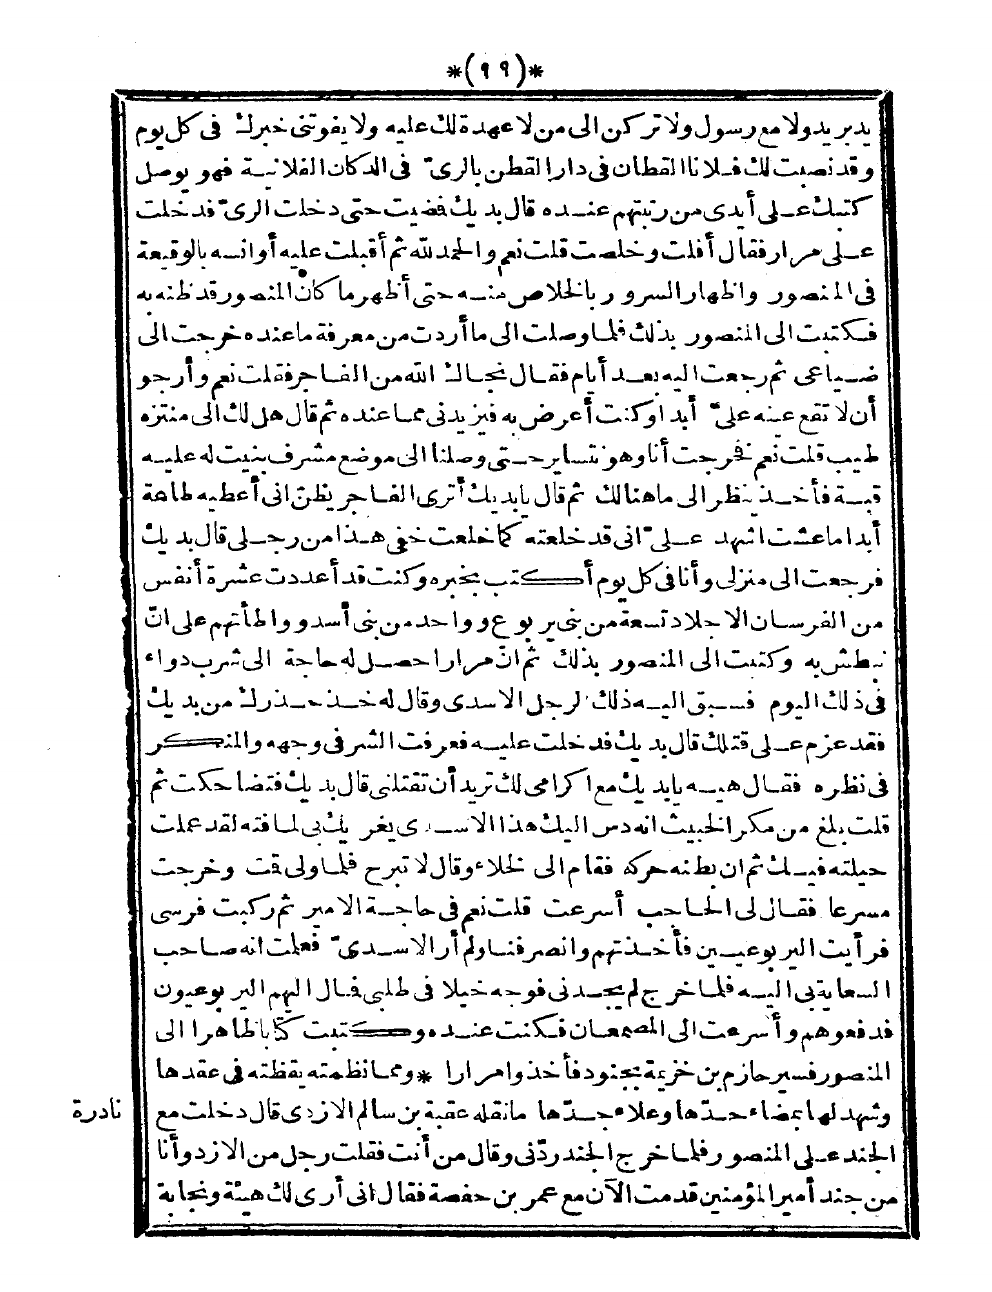 *(٩٩)*
يد بريد ولا مع رسول ولا تركن الى من لا عهدة لك عليه ولا يفوتنى خبرك فى كل يوم
وقد نصبت لك فلانا القطان فى دار القطن بالرىّ فى الدكان الفلانية فهو يوصل
كتبك على أيدى من رتبتهم عنده قال بديك فمضيت حتى دخلت الرىّ فدخلت
على مرار فقال أفلت وخلصت قلت نعم والحمد لله ثم أقبلت عليه أوانسه بالوقيعة
فى المنصور واظهار السرور بالخلاص منه حتى أظهر ما كان المنصور قد ظنه به
فكتبت الى المنصور بذلك فلما وصلت الى ما أردت من معرفة ما عنده خرجت الى
ضياعى ثم رجعت اليه بعد أيام فقال نجاك الله من الفاجر فقلت نعم وأرجو
أن لا تقع عينه علىّ أبدا وكنت أعرض به فيزيدنى مما عنده ثم قال هل لك الى منتزه
طيب قلت نعم فخرجت أنا وهو نتساير حتى وصلنا الى موضع مشرف بنيت له عليه
قبة فأخذ ينظر الى ما هنالك ثم قال يا بديك أترى الفاجر يظن انى أعطيه طاعة
أبدا ما عشت اشهد علىّ انى قد خلعته كما خلعت خفى هذا من رجلى قال بديك
فرجعت الى منزلى وأنا فى كل يوم أكتب بخبره وكنت قد أعددت عشرة أنفس
من الفرسان الاجلاد تسعة من بنى يربوع وواحد من بنى أسد وواطأتهم على انّ
نبطش به وكتبت الى المنصور بذلك ثم انّ مرارا حصل له حاجة الى شرب دواء
فى ذلك اليوم فسبق اليه ذلك الرجل الاسدى وقال له خذ حذرك من بديك
فقد عزم على قتلك قال بديك فدخلت عليه فعرفت الشر فى وجهه والمنكر
فى نظره فقال هيه يا بديك مع اكرامى لك تريد أن تقتلنى قال بديك فتضاحكت ثم
قلت بلغ من مكر الخبيث انه دس اليك هذا الاسدى يغريك بى لما فته لقد عملت
حيلته فيك ثم ان بطنه حركه فقام الى الخلاء وقال لا تبرح فلما ولى قمت وخرجت
مسرعا فقال لى الحاجب أسرعت قلت نعم فى حاجة الامير ثم ركبت فرسى
فرأيت اليربوعيين فأخذتهم وانصرفنا ولم أر الاسدىّ فعلمت انه صاحب
السعاية بى اليه فلما خرج لم يجدنى فوجه خيلا فى طلبى فمال اليهم اليربوعيون
فدفعوهم وأسرعت الى المصمعان فكنت عنده وكتبت كتابا ظاهرا الى
المنصور فسير حازم بن خزيمة بجنود فأخذوا مرارا * ومما نظمته يقظته فى عقدها
وشهد لها بمضاء حدّها وعلاء جدّها ما نقله عقبة بن سالم الازدى قال دخلت مع
نادرة
الجند على المنصور فلما خرج الجند ردّنى وقال من أنت فقلت رجل من الازد وأنا
من جند أمير المؤمنين قدمت الآن مع عمر بن حفصة فقال انى أرى لك هيئة ونجابة